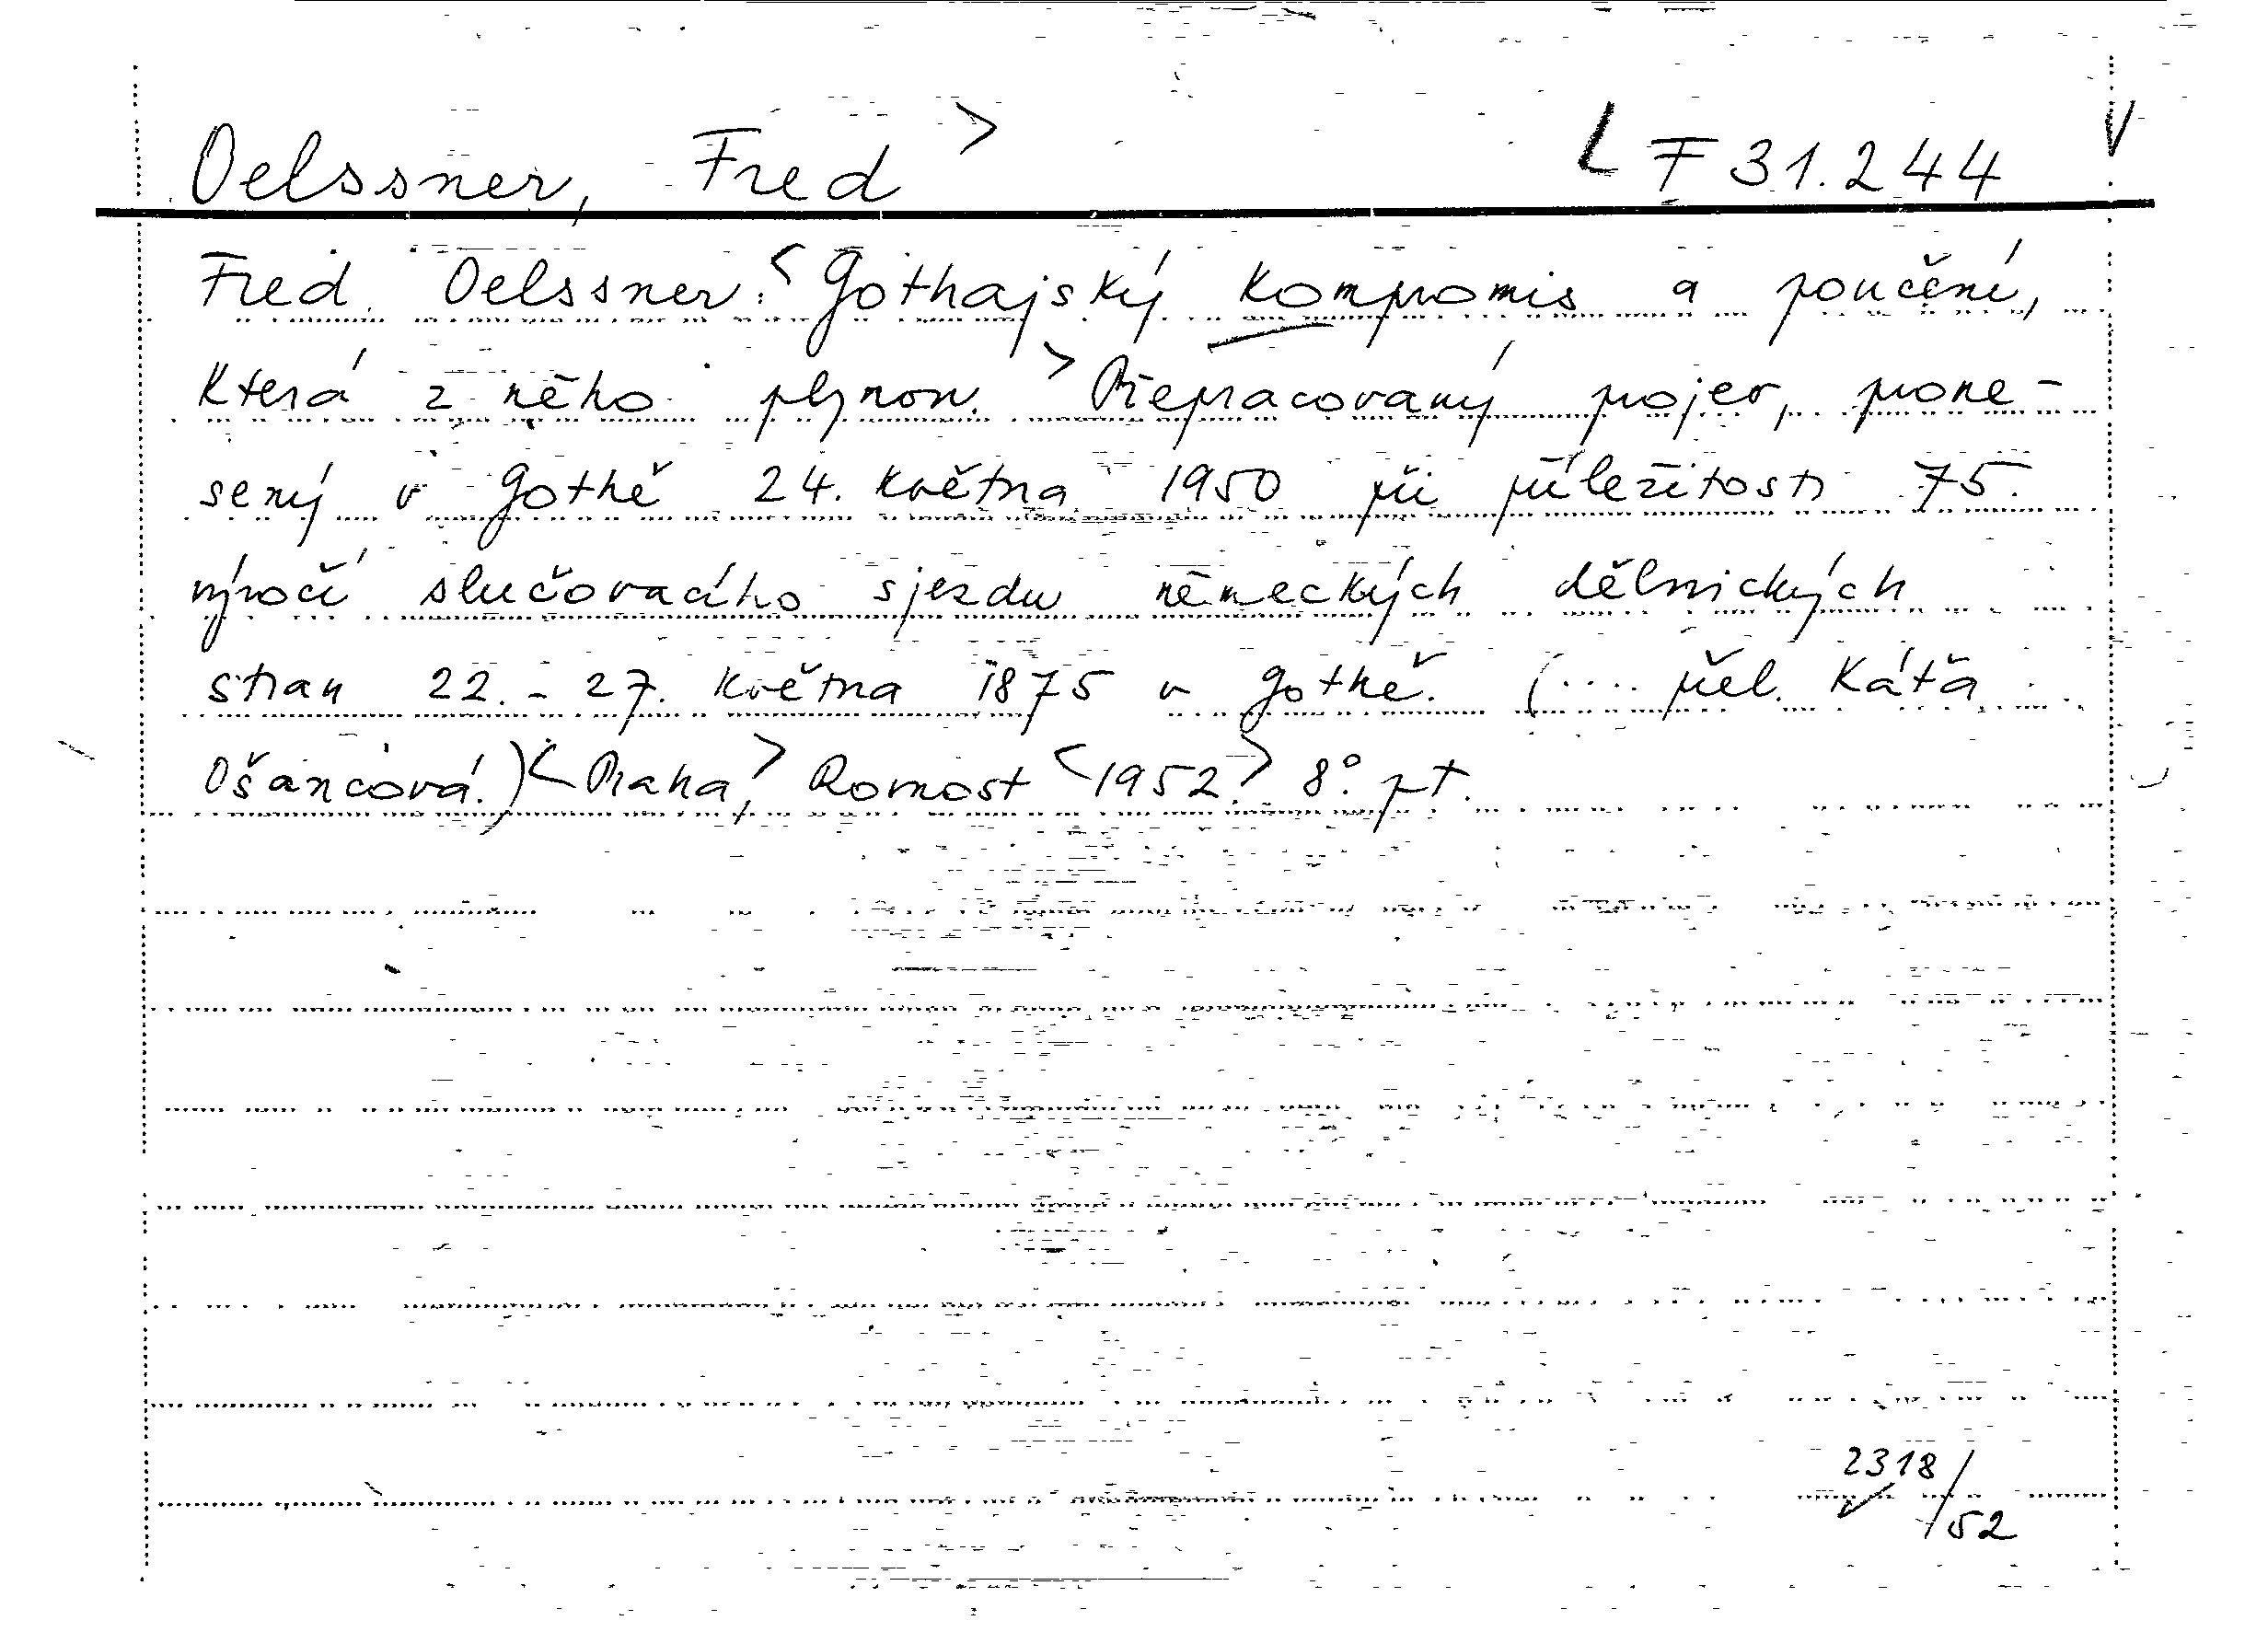 Oelssner, Fred > < F 31.244
Fred Oelssner: < Gothajský kompromis a poučení,
která z něho plynou. > Přepracovaný projev, prone-
sený v Gothě 24. května 1950 při příležitosti 75.
výročí slučovacího sjezdu německých dělnických
stran 22. - 27. května 1875 v Gothě. (.... přel. Káťa
Ošancová.) < Praha, > Rovnost < 1952. > 8°. pt.
2318/
52